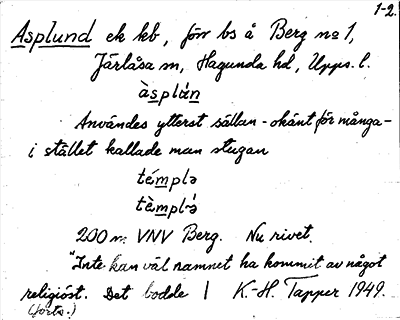 1-2.
Asplund ek kb, förr bs å Berg no 1,
Järlåsa sn, Hagunda hd, Upps. l.
àsplán
Användes ytterst sällan - okänt för många -
i stället kallade man stugan
témplə
tèmpl-ə́
200 m VNV Berg. Nu rivet.
"Inte kan väl namnet ha kommit av något
religiöst. Det bodde | K.-H. Tapper 1949.
(forts.)